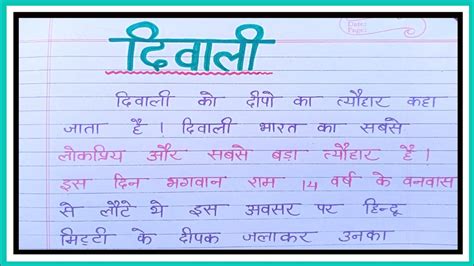 दिवाली
दिवाली को दीपो का त्यौहार कहा
जाता है। दिवाली भारत का सबसे
लोकप्रिय और सबसे बड़ा त्यौहार है।
इस दिन भगवान राम 14 वर्ष के वनवास
से लौटे थे इस अवसर पर हिन्दू
मिट्टी के दीपक जलाकर उनका